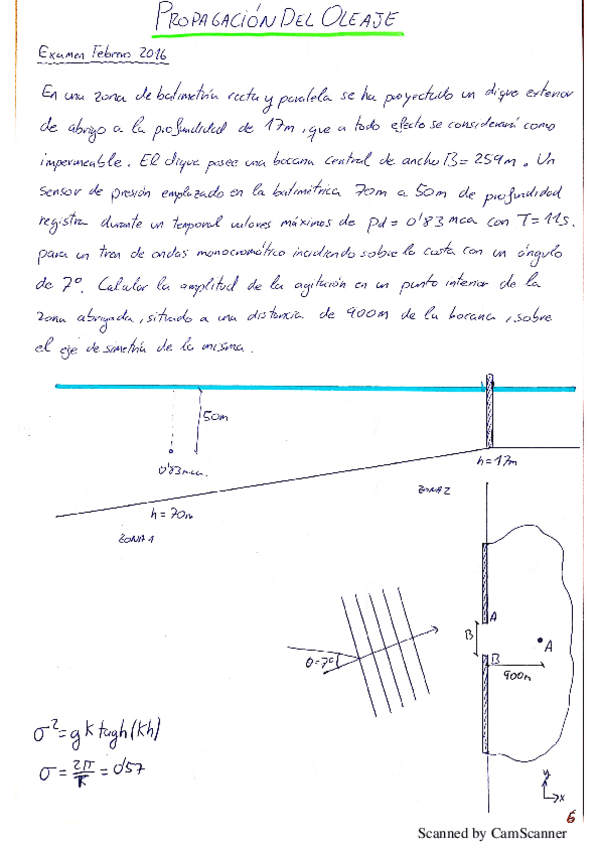 PROPAGACIÓN DEL OLEAJE
Examen Febrero 2016
En una zona de batimetría recta y paralela se ha proyectado un dique exterior
de abrigo a la profundidad de 17m, que a todo efecto se considerará como
impermeable. El dique posee una bocana central de ancho B=259m. Un
sensor de presión emplazado en la batimétrica 70m a 50m de profundidad
registra durante un temporal valores máximos de Pd=0'83 mca con T=11s.
para un tren de ondas monocromático incidiendo sobre la costa con un ángulo
de 7º. Calcular la amplitud de la agitación en un punto interior de la
zona abrigada, situado a una distancia de 900m de la bocana, sobre
el eje de simetría de la misma.
50m
0'83 mca.
h=17m
h=70m
ZONA 2
ZONA 1
A
B
A
θ=7º
B
900m
σ²=gk tagh(kh)
σ=2π/T=0'57
y
x
6
Scanned by CamScanner